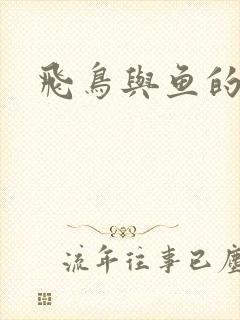 飛鳥與鱼的
流年往事已